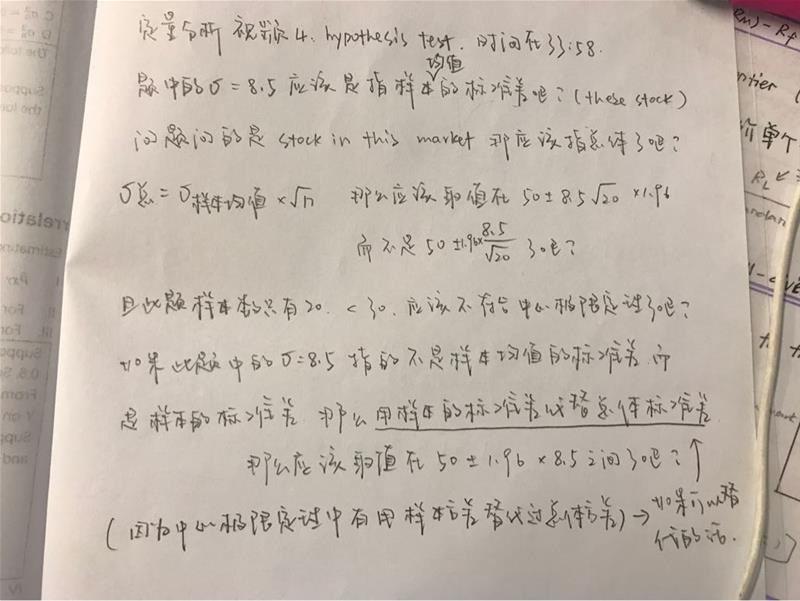 定量分析 视频4. hypothesis test. 时间在33:58.
题中的σ=8.5应该是指样本均值的标准差吧?(these stock)
问题问的是 stock in this market 那应该指总体了吧?
σ总=σ样本均值×√n 那么应该取值在 50±8.5√20 ×1.96
而不是 50±1.96×8.5/√20 了吧?
且此题样本数只有20. <30. 应该不符合中心极限定理了吧?
如果此题中的σ=8.5指的不是样本均值的标准差而
是样本的标准差 那么用样本的标准差代替总体标准差
那么应该取值在 50±1.96×8.5之间了吧?↑
(因为中心极限定理中有用样本方差替代过总体方差)→如果可以替
代的话.
C.
D.
The follo
Suppos
the
rrelatio
Estimatin
ρxy
II. For
III. For
Suppo
0.8. S
From
Y on
Supp
and
IV
Rm)-Rf
ntier
价单个
RL